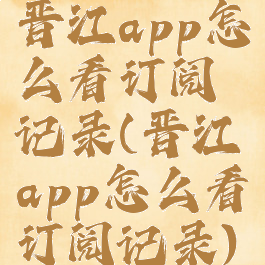 晋江app怎
么看订阅
记录(晋江
app怎么看
订阅记录)